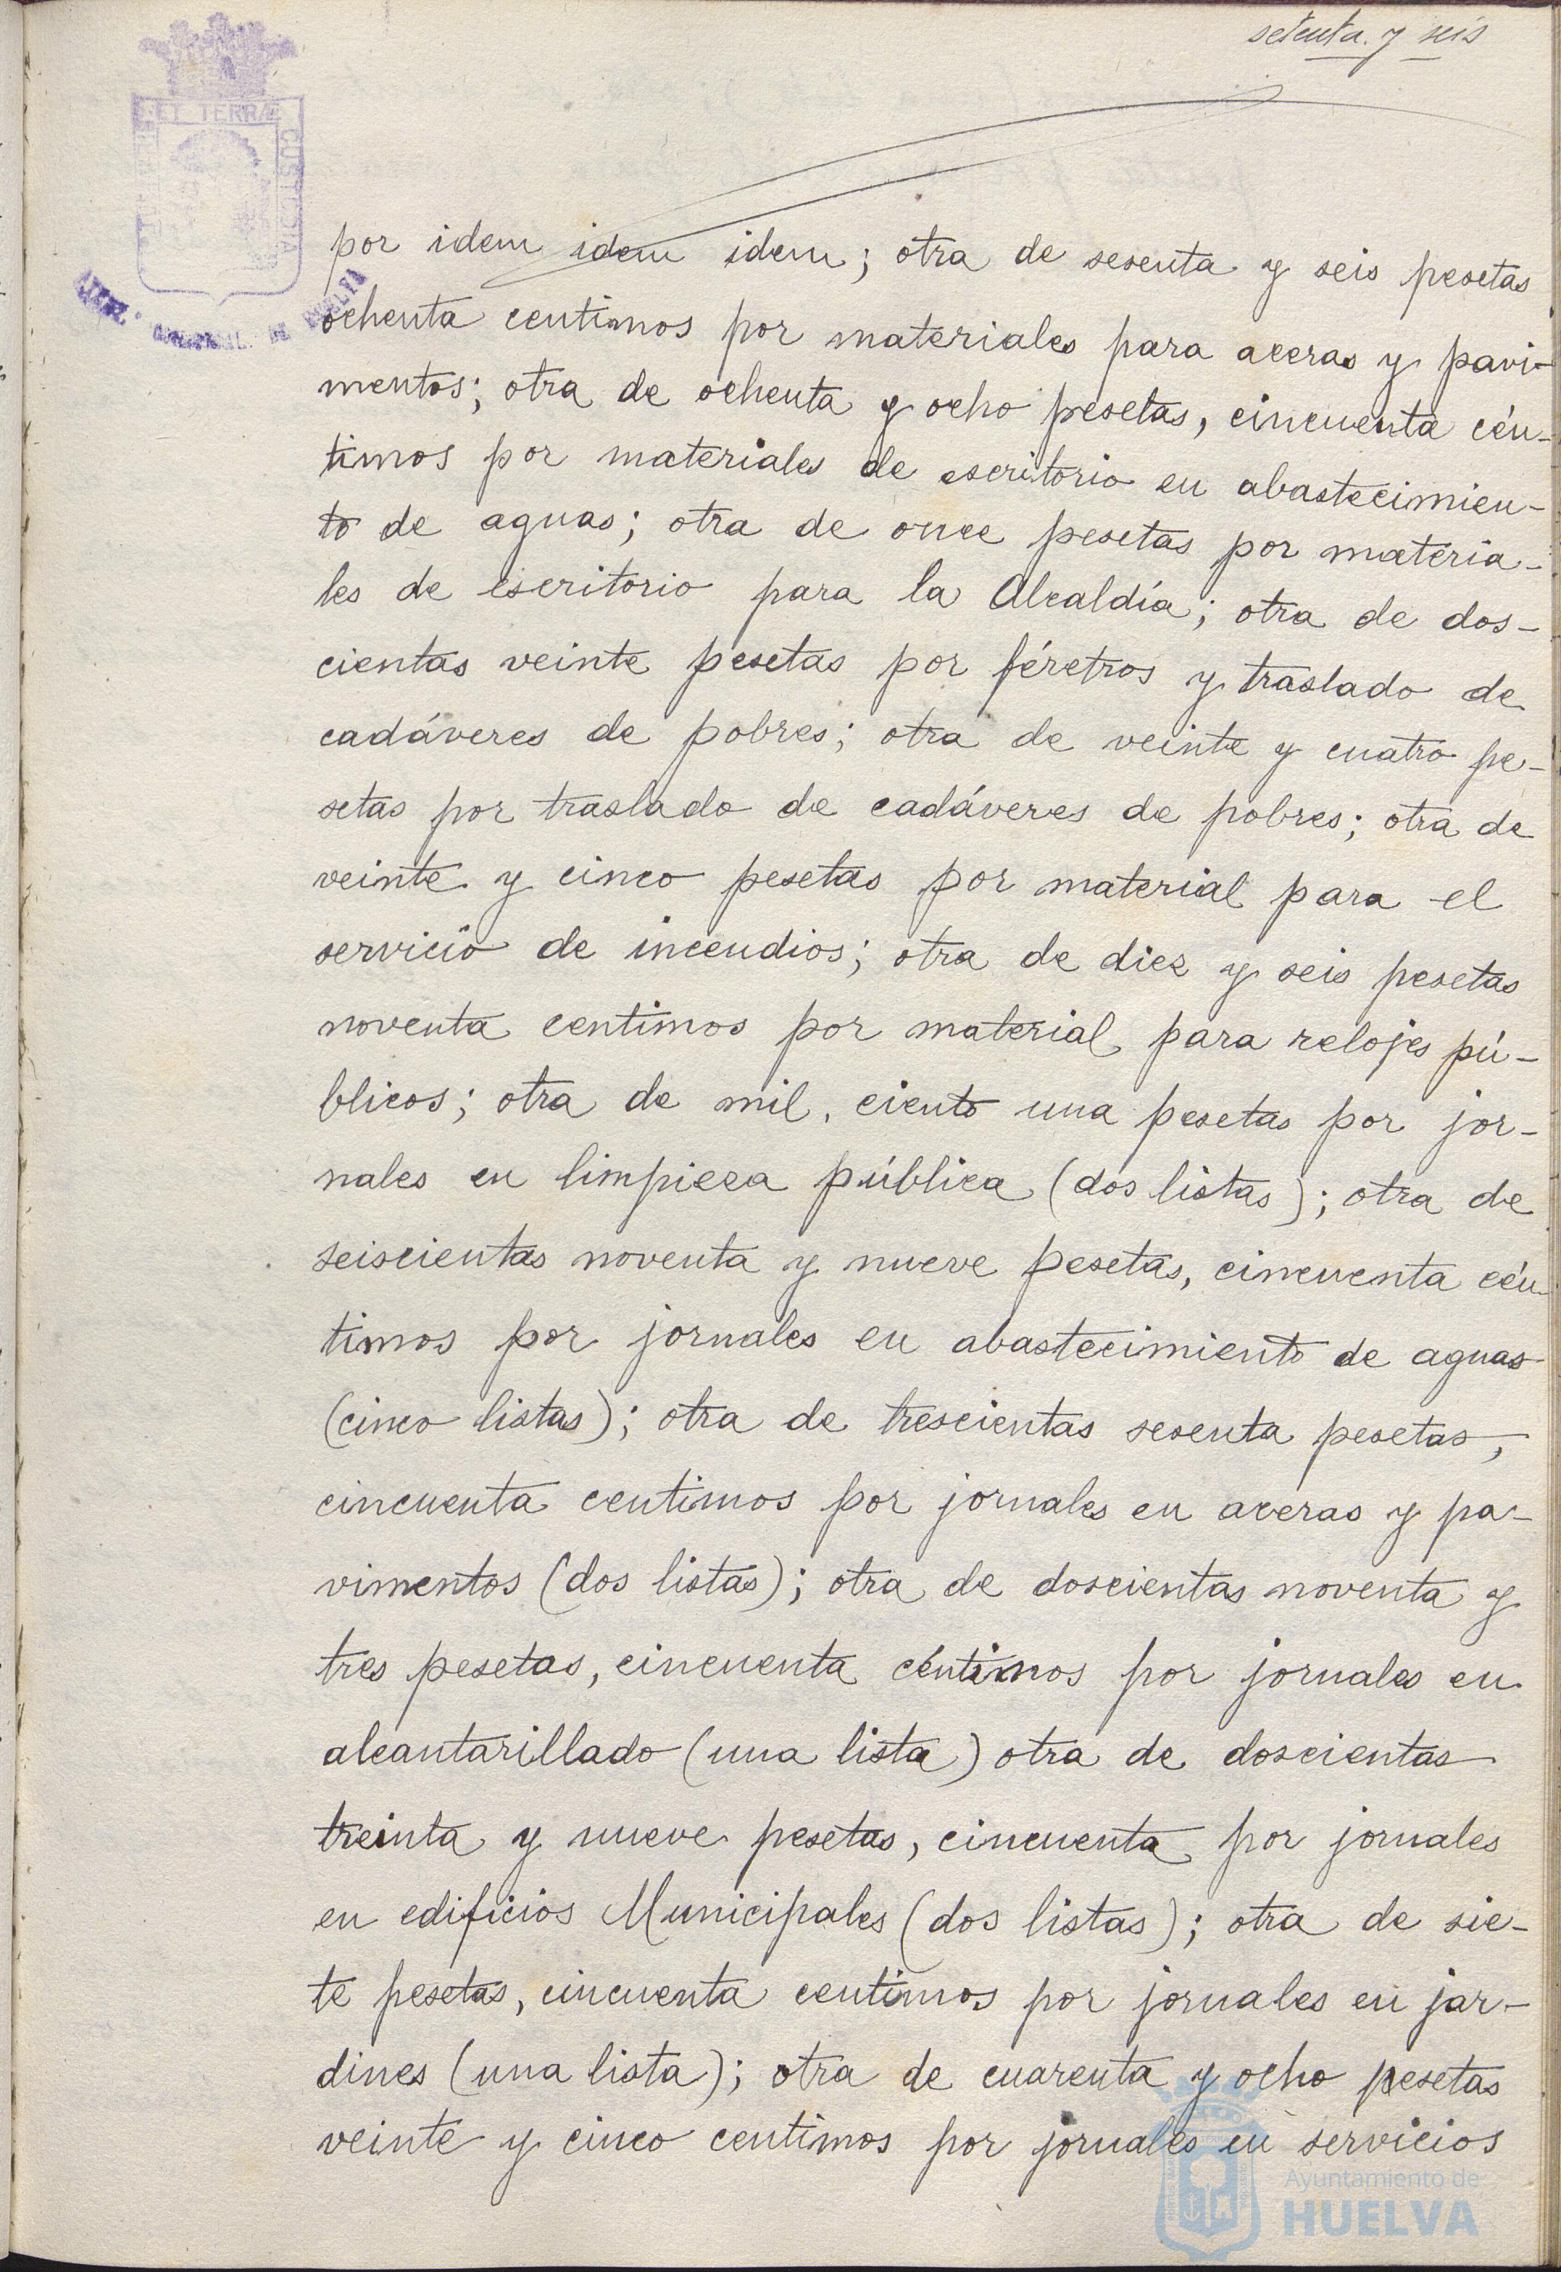 setenta y seis
ET TERRÆ
CUSTODIA
por idem idem idem; otra de sesenta y seis pesetas
ochenta centimos por materiales para aceras y pavi-
mentos; otra de ochenta y ocho pesetas, cincuenta cén-
timos por materiales de escritorio en abastecimien-
to de aguas; otra de once pesetas por materia-
les de escritorio para la Alcaldía; otra de dos-
cientas veinte pesetas por féretros y traslado de
cadáveres de pobres; otra de veinte y cuatro pe-
setas por traslado de cadáveres de pobres; otra de
veinte y cinco pesetas por material para el
servicio de incendios; otra de diez y seis pesetas
noventa centimos por material para relojes pú-
blicos; otra de mil, ciento una pesetas por jor-
nales en limpieza pública (dos listas); otra de
seiscientas noventa y nueve pesetas, cincuenta cén-
timos por jornales en abastecimiento de aguas
(cinco listas); otra de trescientas sesenta pesetas,
cincuenta centimos por jornales en aceras y pa-
vimentos (dos listas); otra de doscientas noventa y
tres pesetas, cincuenta céntimos por jornales en
alcantarillado (una lista) otra de doscientas
treinta y nueve pesetas, cincuenta por jornales
en edificios Municipales (dos listas); otra de sie-
te pesetas, cincuenta centimos por jornales en jar-
dines (una lista); otra de cuarenta y ocho pesetas
veinte y cinco centimos por jornales en servicios
Ayuntamiento de
HUELVA